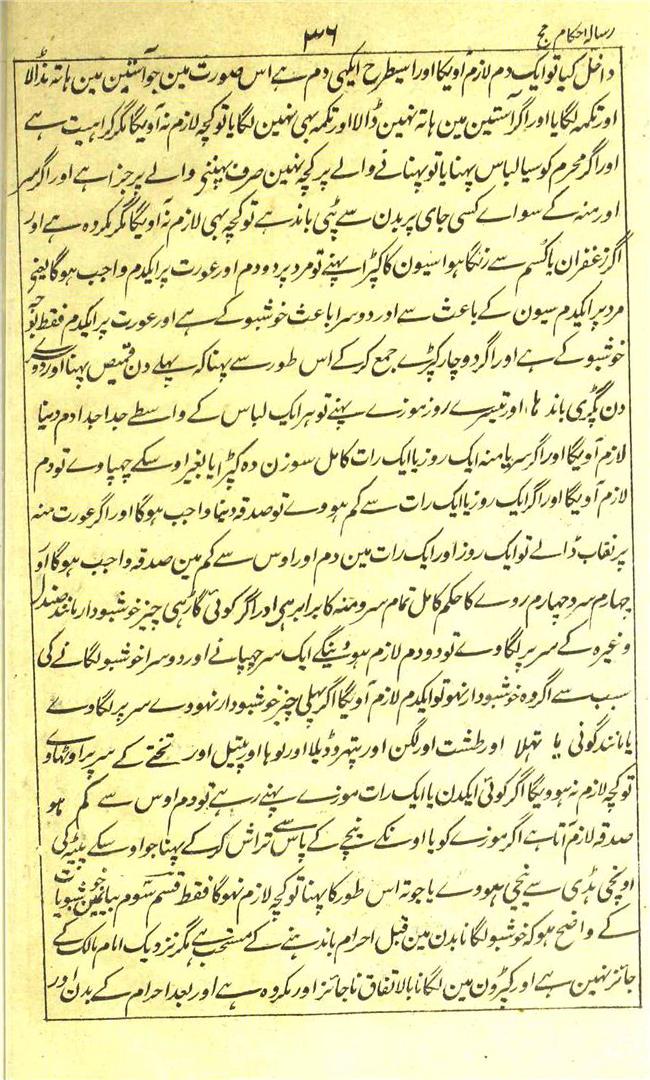 رسالہ احکام حج ۳۶
داخل کیا تو ایک دم لازم آویگا اور اسیطرح ایکہی دم ہے اس صورت مین جو آستین مین ہاتہ نڈالا
اور تکمہ لگایا اور اگر آستین مین ہاتہ نہین ڈالا اور تکمہ بہی نہین لگایا تو کچہ لازم نہ آویگا مگر کراہیت ہے
اور اگر محرم کو سیا لباس پہنایا تو پہنانے والے پر کچہ نہین صرف پہننی والے پر جزا ہے اور اگر سر
اور منہ کے سواے کسی جای پر بدن سے پٹی باندہے تو کچہ بہی لازم نہ آویگا مگر مکروہ ہے اور
اگر زعفران یا کسُم سے رنگا ہوا سیون کا کپڑا پہنے تو مرد پر دو دم اور عورت پر ایکدم واجب ہوگا یعنی
مرد پر ایکدم سیون کے باعث سے اور دوسرا باعث خوشبو کے ہے اور عورت پر ایکدم فقط بوجہ
خوشبو کے ہے اور اگر دو چار کپڑے جمع کر کے اس طور سے پہنا کہ پہلے دن قمیص پہنا اور دوسرے
دن پگڑی باندہا، اور تیسرے روز موزے پہنے تو ہر ایک لباس کے واسطے جدا جدا دم دینا
لازم آویگا اور اگر سر یا منہ ایک روز یا ایک رات کامل سوزن دہ کپڑا یا بغیر اوسکے چہپاوے تو دم
لازم آویگا اور اگر ایک روز یا ایک رات سے کم ہووے تو صدقہ دینا واجب ہوگا اور اگر عورت منہ
پر نقاب ڈالے تو ایک روز اور ایک رات مین دم اور اوس سے کم مین صدقہ واجب ہوگا اور
چہارم سر و چہارم روے کا حکم کامل تمام سر و منہ کا برابر ہی اور اگر کوئی گاڑہی چیز خوشبودار مانند صندل
وغیرہ کے سر پر لگاوے تو دو دم لازم ہووینگے ایک سر چہپانے اور دوسرا خوشبو لگانے کی
سبب سے اگر وہ خوشبودار نہو تو ایکدم لازم آویگا اگر پہلی چیز خوشبودار نہووے سر پر لگاوے
یا مانند گونی یا تہلا اور طشت اور لگن اور پتہر و ڈہیلا اور لوہا اور پیتل اور تختے کے سر پر اوٹہاوی
تو کچہ لازم نہ ہوویگا اگر کوئی ایکدن یا ایک رات موزے پہنے رہے تو دم اوس سے کم ہو
صدقہ لازم آتا ہے اگر موزے کو یا اونکے نیچے کے پاس سے تراش کر کے پہنا جو اوسکے پیٹہ کی
اونچی ہڈی سے نیچی ہووے یا جوتہ اس طور کا پہنا تو کچہ لازم نہوگا فقط قسم سوم بیانمین خوشبویات
کے واضح ہو کہ خوشبو لگانا بدن مین قبل احرام باندہنے کے مستحب ہے مگر نزدیک امام مالک کے
جائز نہین ہے اور کپڑون مین لگانا بالاتفاق ناجائز اور مکروہ ہے اور بعد احرام کے بدن اور